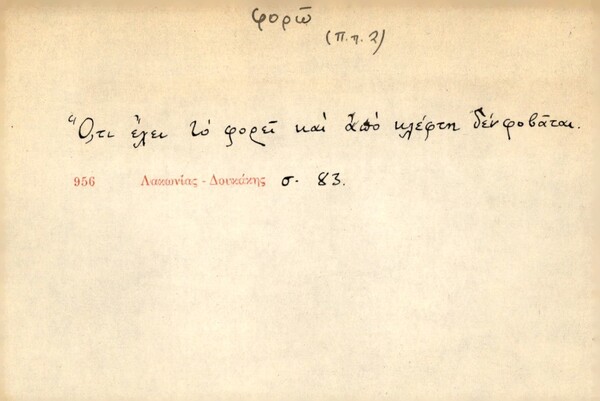 φορῶ
(π.π. 2)
Ὅ,τι ἔχει τὸ φορεῖ καὶ ἀπὸ κλέφτη δὲν φοβᾶται.
956 Λακωνίας - Δουκάκης σ. 83.